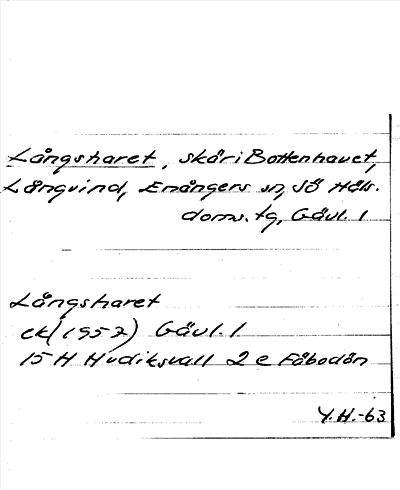 Långsharet, skär i Bottenhavet,
Långvind, Enångers sn, Sö Häls.
doms. tg, Gävl. l
Långsharet
ek (1957) Gävl. l
15 H Hudiksvall 2 e Fäbodån
Y.H.-63